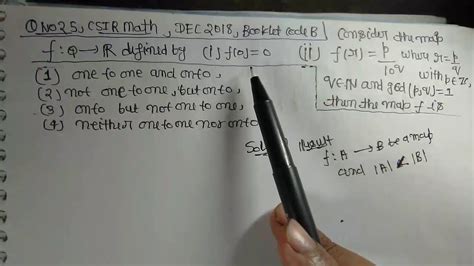 Q NO 25, CSIR Math, DEC 2018, Booklet code B
Consider the map
f: Q → R defined by (i) f(0) = 0 (ii) f(r) = p/10^q where r = p/q
with p ∈ Z,
q ∈ N and gcd (p,q) = 1
then the map f is
(1) one to one and onto,
(2) not one to one, but onto,
(3) onto but not one to one,
(4) neither one to one nor onto
Sol: Result
f: A → B be a map
and |A| < |B|